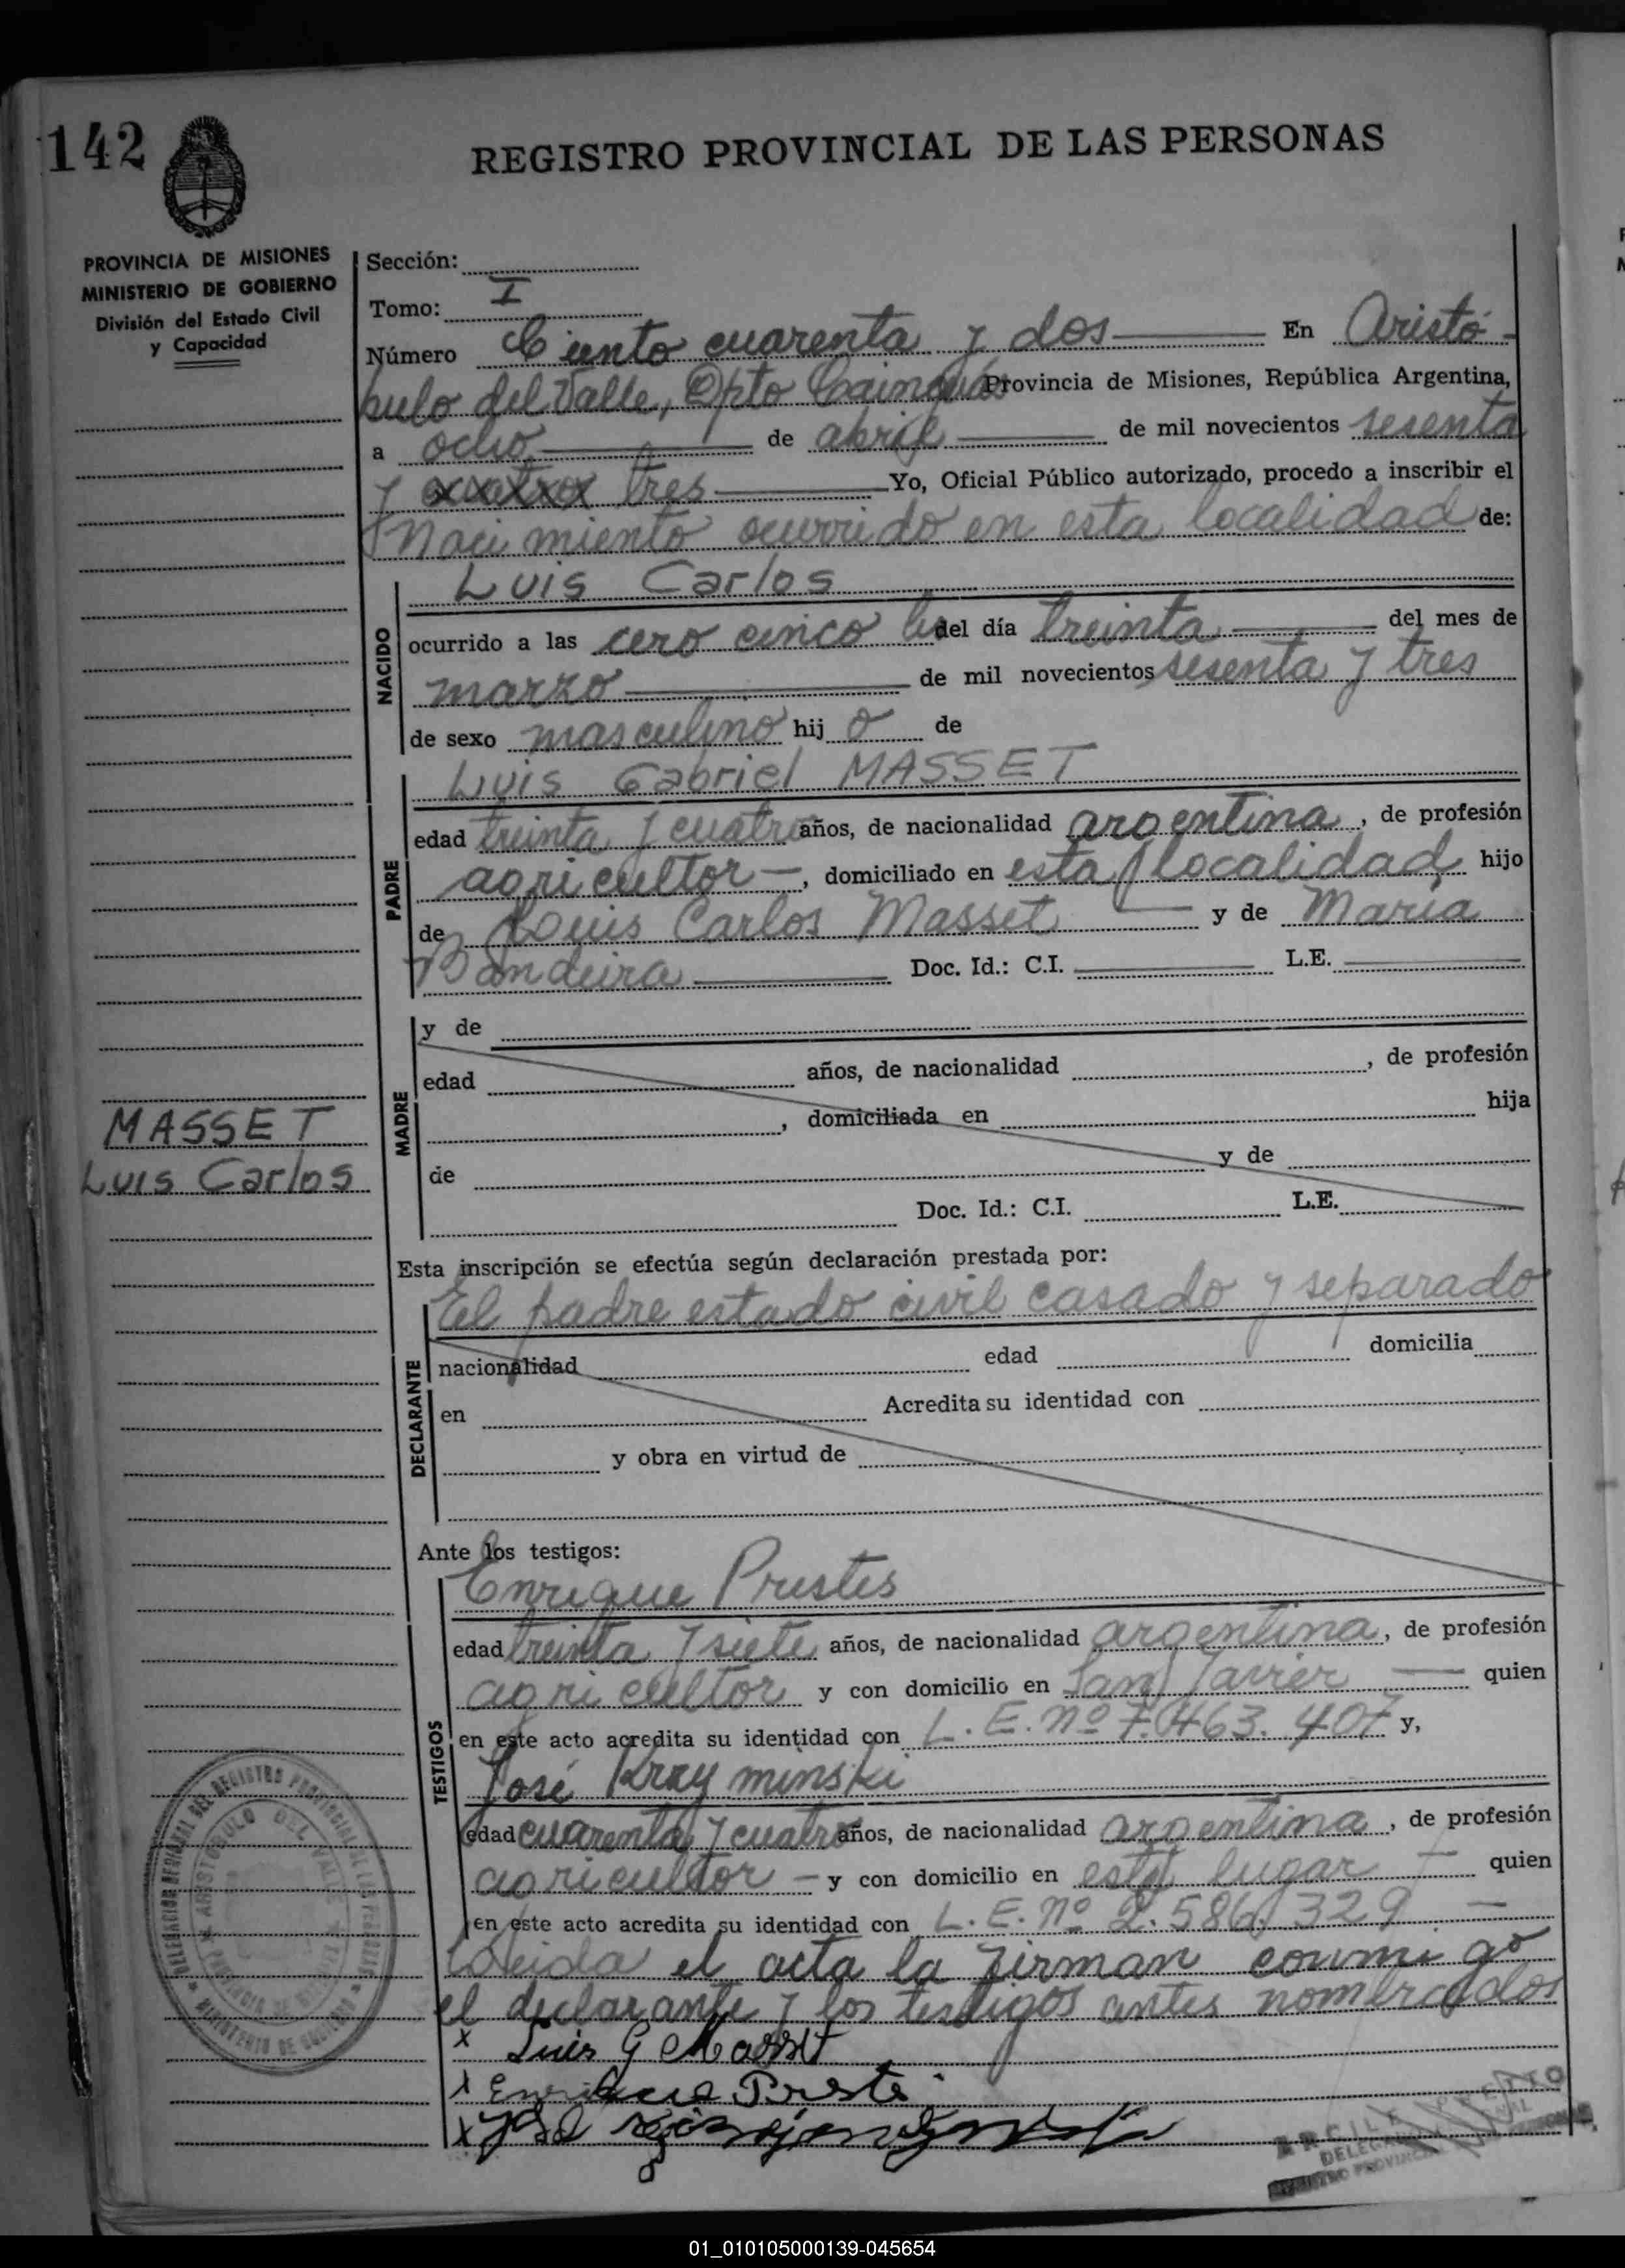 142
REGISTRO PROVINCIAL DE LAS PERSONAS
PROVINCIA DE MISIONES
MINISTERIO DE GOBIERNO
División del Estado Civil
y Capacidad
Sección:
Tomo: I
Número Ciento cuarenta y dos En Aristó-
bulo del Valle, Dpto Cainguás Provincia de Misiones, República Argentina,
a ocho de abril de mil novecientos sesenta
y cuatro tres Yo, Oficial Público autorizado, procedo a inscribir el
Nacimiento ocurrido en esta localidad de:
NACIDO
Luis Carlos
ocurrido a las cero cinco hs del día treinta del mes de
marzo de mil novecientos sesenta y tres
de sexo masculino hij o de
PADRE
Luis Gabriel MASSET
edad treinta y cuatro años, de nacionalidad argentina, de profesión
agricultor, domiciliado en esta localidad hijo
de Louis Carlos Masset y de María
Bandeira Doc. Id.: C.I. L.E.
MADRE
y de
edad años, de nacionalidad , de profesión
, domiciliada en hija
de y de
Doc. Id.: C.I. L.E.
MASSET
Luis Carlos
Esta inscripción se efectúa según declaración prestada por:
DECLARANTE
El padre estado civil casado y separado
nacionalidad edad domicilia
en Acredita su identidad con
y obra en virtud de
Ante los testigos:
TESTIGOS
Enrique Prestes
edad treinta y siete años, de nacionalidad argentina, de profesión
agricultor y con domicilio en San Javier quien
en este acto acredita su identidad con L.E. nº 7.463.407 y,
José Kray minski
edad cuarenta y cuatro años, de nacionalidad argentina, de profesión
agricultor y con domicilio en este lugar quien
en este acto acredita su identidad con L.E. nº 2.586.329
Leida el acta la firman conmigo
el declarante y los testigos antes nombrados
x Luis G Masset
x Enrique Preste
x José
DELEGACION REGIONAL DEL REGISTRO PROVINCIAL DE LAS PERSONAS
MINISTERIO DE GOBIERNO
ARISTOBULO DEL VALLE
PROVINCIA DE MISIONES
01_010105000139-045654